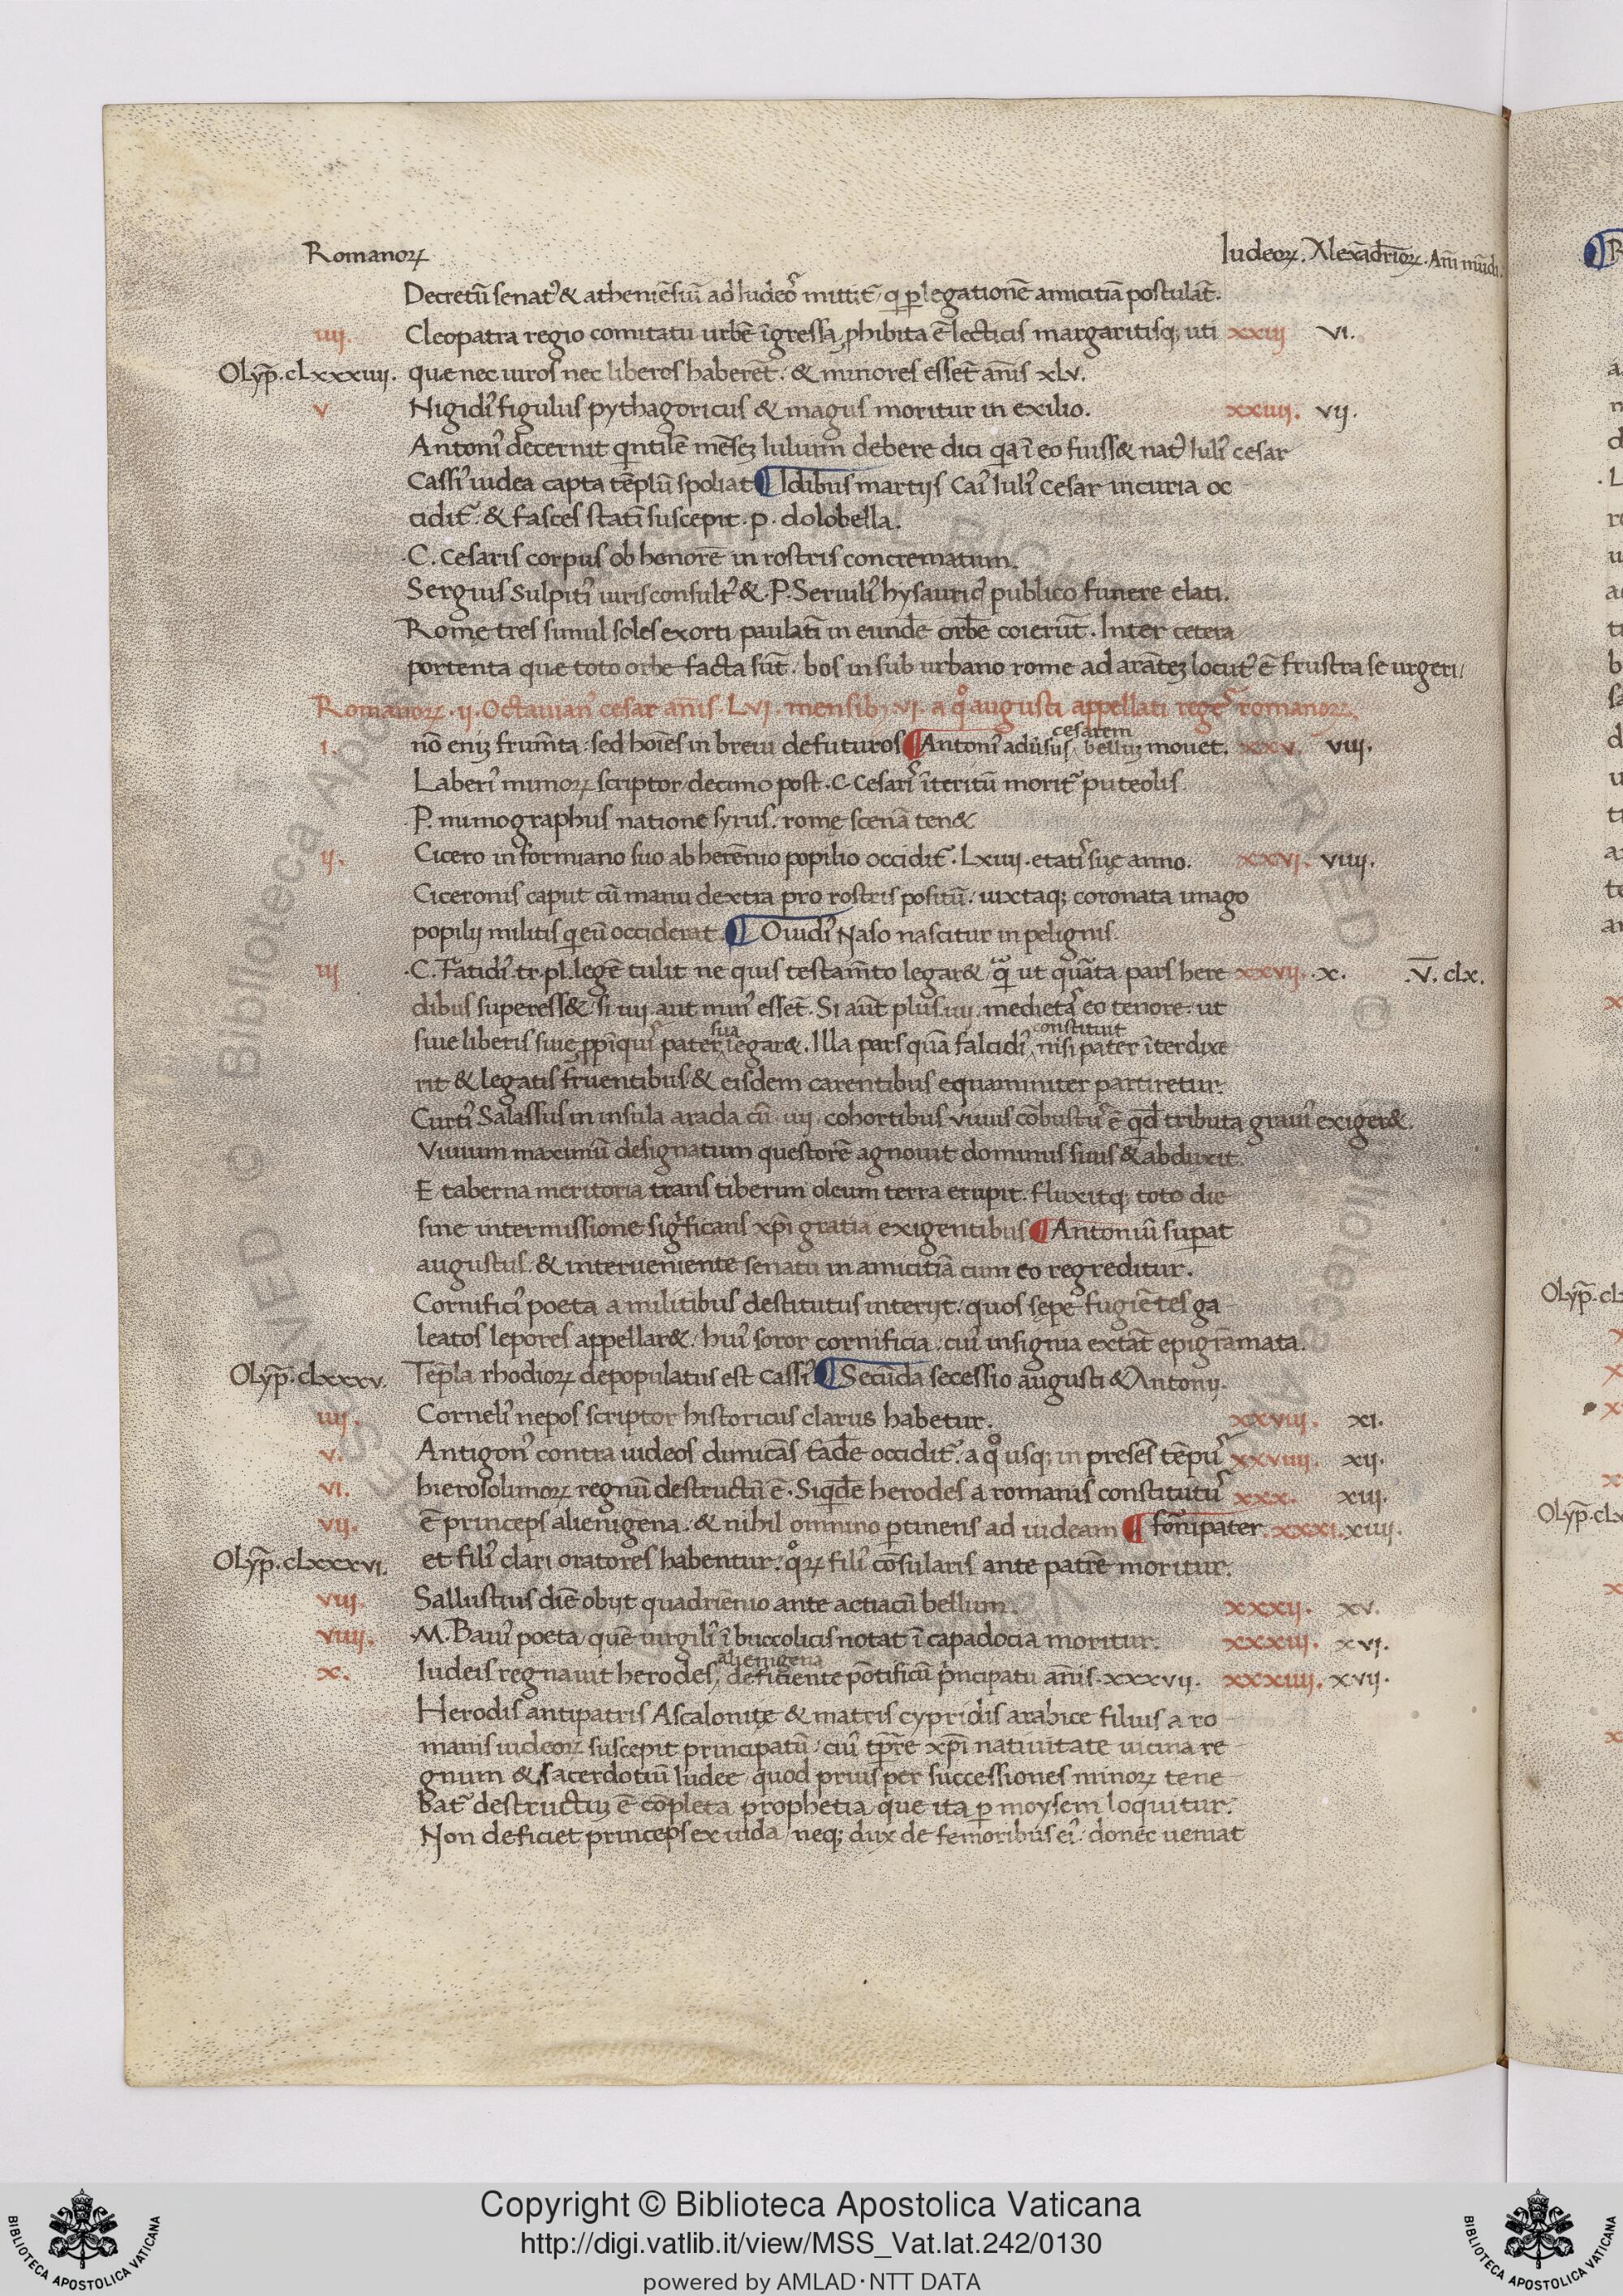 Romanoꝝ Iudeoꝝ. Alexãdrioꝝ. Ani mũdi.
Decretũ senatꝰ & atheniẽsiũ ad Iudeoꝰ mittit̃ / q̃ ꝑ legationẽ amicitiã postulãt.
iiii. Cleopatra regio comitatu urbẽ ĩgressa, ꝓhibita ẽ lecticis margaritisqꝫ uti xxiij VI.
Olyp̃. cLxxxiiii. quæ nec uiros nec liberos haberẽt. & minores essẽt anis xLv.
v Nigidiꝰ figulus pythagoricus & magus moritur in exilio. xxiiij. VIJ.
Antoniꝰ decernit qintilẽ mẽseꝫ Iulium debere dici qa ĩ eo fuiss& natꝰ Iuliꝰ cesar
Cassiꝰ iudea capta tẽplũ spoliat ¶ Idibus martijs Caiꝰ Iuliꝰ Cesar in curia oc
cidit̃. & fasces statĩ suscepit. p. dolobella.
C. Cesaris corpus ob honorẽ in rostris concrematum.
Sergius Sulpitiꝰ iuris consultꝰ &. P. Seruiliꝰ hysauricꝰ publico funere elati.
Rome tres simul soles exorti paulatĩ in eundẽ orbẽ coierũt. Inter cetera
portenta quæ toto orbe facta sũt. bos in sub urbano rome ad arãteꝫ locutꝰ ẽ frustra se urgeri /
Romanoꝝ. ij. Octauianꝰ cesar anis. LVI. mensibꝫ VI. a qͦ augusti appellati regeˢ romanoꝝ.
cesarem
i. nõ eniꝫ frumẽta: sed hoies in breui defuturos ¶ Antoniꝰ aduisus, belluꝫ mouet. xxv. VIII.
Laberiꝰ mimoꝝ scriptor / decimo post. C. Cesariˢ ĩteritũ morit̃ puteolis.
P. mimographus natione syrus. rome scenã ten&
ij. Cicero in formiano suo ab herẽnio popilio occidit̃. Lxiiij. etatiˢ suę anno. xxvi. VIIII.
Ciceronis caput cũ manu dextra pro rostris positũ. iuxtaqꝫ coronata imago
popilij militis q eũ occiderat ¶ Ouidiꝰ Naso nascitur in pelignis.
iij .C. Fatidiꝰ. tr. pl. legẽ tulit ne quis testamẽto legar& ut quãta pars here xxvii. x. .V̄. cLx.
dibus superess& / si iiij. aut minꝰ essẽt. Si aũt plus. iiij. medietaˢ eo tenore. ut
sua constituit
siue liberis siue ꝓpĩquiˢ pater, legar&. Illa pars quã falcidiꝰ, nisi pater ĩterdixe
rit & legatis fruentibus & eisdem carentibus equanimiter partiretur.
Curtiꝰ Salassus in insula arada cũ. iiij. cohortibus viuus cõbustuˢ ẽ qd tributa grauiꝰ exiger&.
Viuium maximũ designatum questorẽ agnouit dominus suus & abduxit.
E taberna meritoria trans tiberim oleum terra erupit. fluxitqꝫ toto die
sine intermissione significans xp̃i gratia exigentibus ¶ Antoniũ suꝑat
augustus. & interueniente senatu in amicitiã cum eo regreditur.
Cornificiꝰ poeta a militibus destitutus interijt. quos sępe fugiẽtes ga
leatos lepores appellar&. huiꝰ soror cornificia. cuiꝰ insignia extãt epigrãmata.
Olyp̃. cLxxxv. Tẽpla rhodioꝝ depopulatus est Cassiꝰ ¶ Secũda secessio augusti & Antonij.
iiij. Corneliꝰ nepos scriptor historicus clarus habetur. xxviii. XI.
v. Antigonꝰ contra iudeos dimicãs fadẽ occidit̃. a qͦ usqꝫ in presẽs tẽpuˢ xxviiii. XII.
vi. hierosolimoꝝ regnũ destructũ ẽ. Siqidẽ herodes a romanis constitutuˢ xxx. XIII.
vii. ẽ princeps alienigena. & nihil omnino ꝑtinens ad iudeam ¶ fonipater. xxxi. XIIII.
Olyp̃. cLxxxvi. et filiꝰ clari oratores habentur. qͦꝝ filiꝰ cõsularis ante patrẽ moritur.
viii. Sallustius diẽ obijt quadriẽnio ante actiacũ bellum. xxxii. XV.
viiii. M. Bauiꝰ poeta / quẽ uirgiliꝰ ĩ buccolicis notat ĩ capadocia moritur. xxxiii. XVI.
alienigena
x. Iudeis regnauit herodes, deficiente põtificũ pncipatu anis. xxxvii. xxxiiii. XVII.
Herodis antipatris Ascalonitę & matris cypridis arabice filius a ro
manis iudeoꝝ suscepit principatũ. cuiꝰ tp̃re xp̃i natiuitate uicina re
gnum & sacerdotiũ Iudee, quod prius per successiones minoꝝ tene
bat̃ destructuꝫ ẽ cõpleta prophetia, que ita ꝑ moysem loquitur.
Non deficiet princeps ex iuda / neqꝫ dux de femoribus eiꝰ. donec ueniat
Copyright © Biblioteca Apostolica Vaticana
http://digi.vatlib.it/view/MSS_Vat.lat.242/0130
powered by AMLAD·NTT DATA
BIBLIOTECA APOSTOLICA VATICANA
BIBLIOTECA APOSTOLICA VATICANA